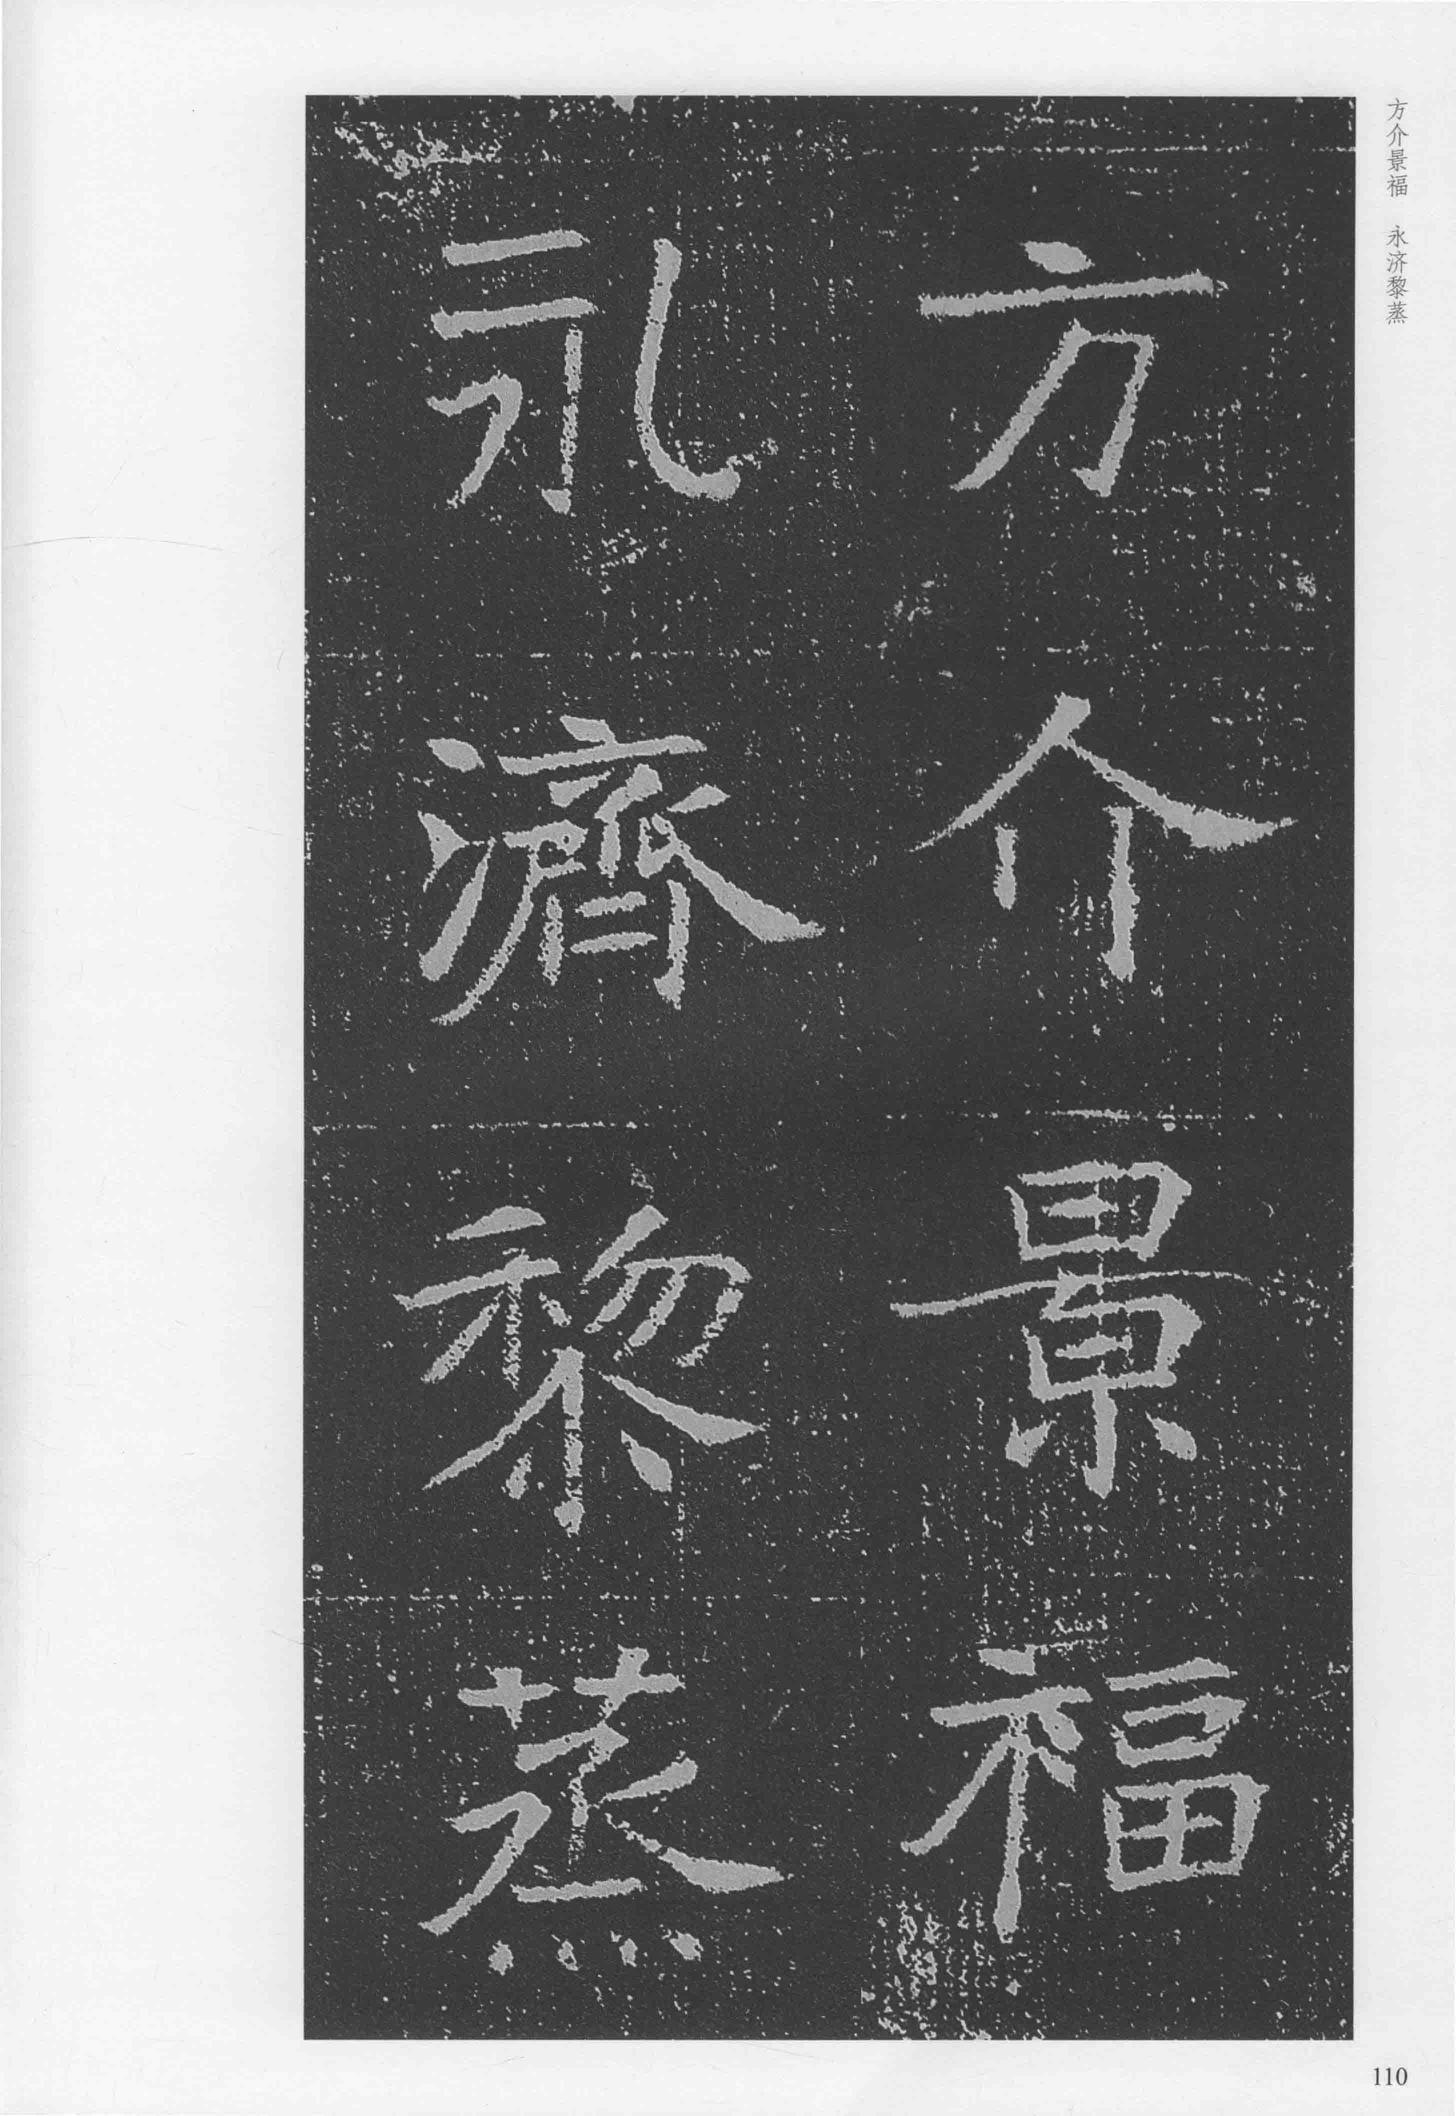 方介景福 永济黎蒸
方介景福
永濟黎蒸
110